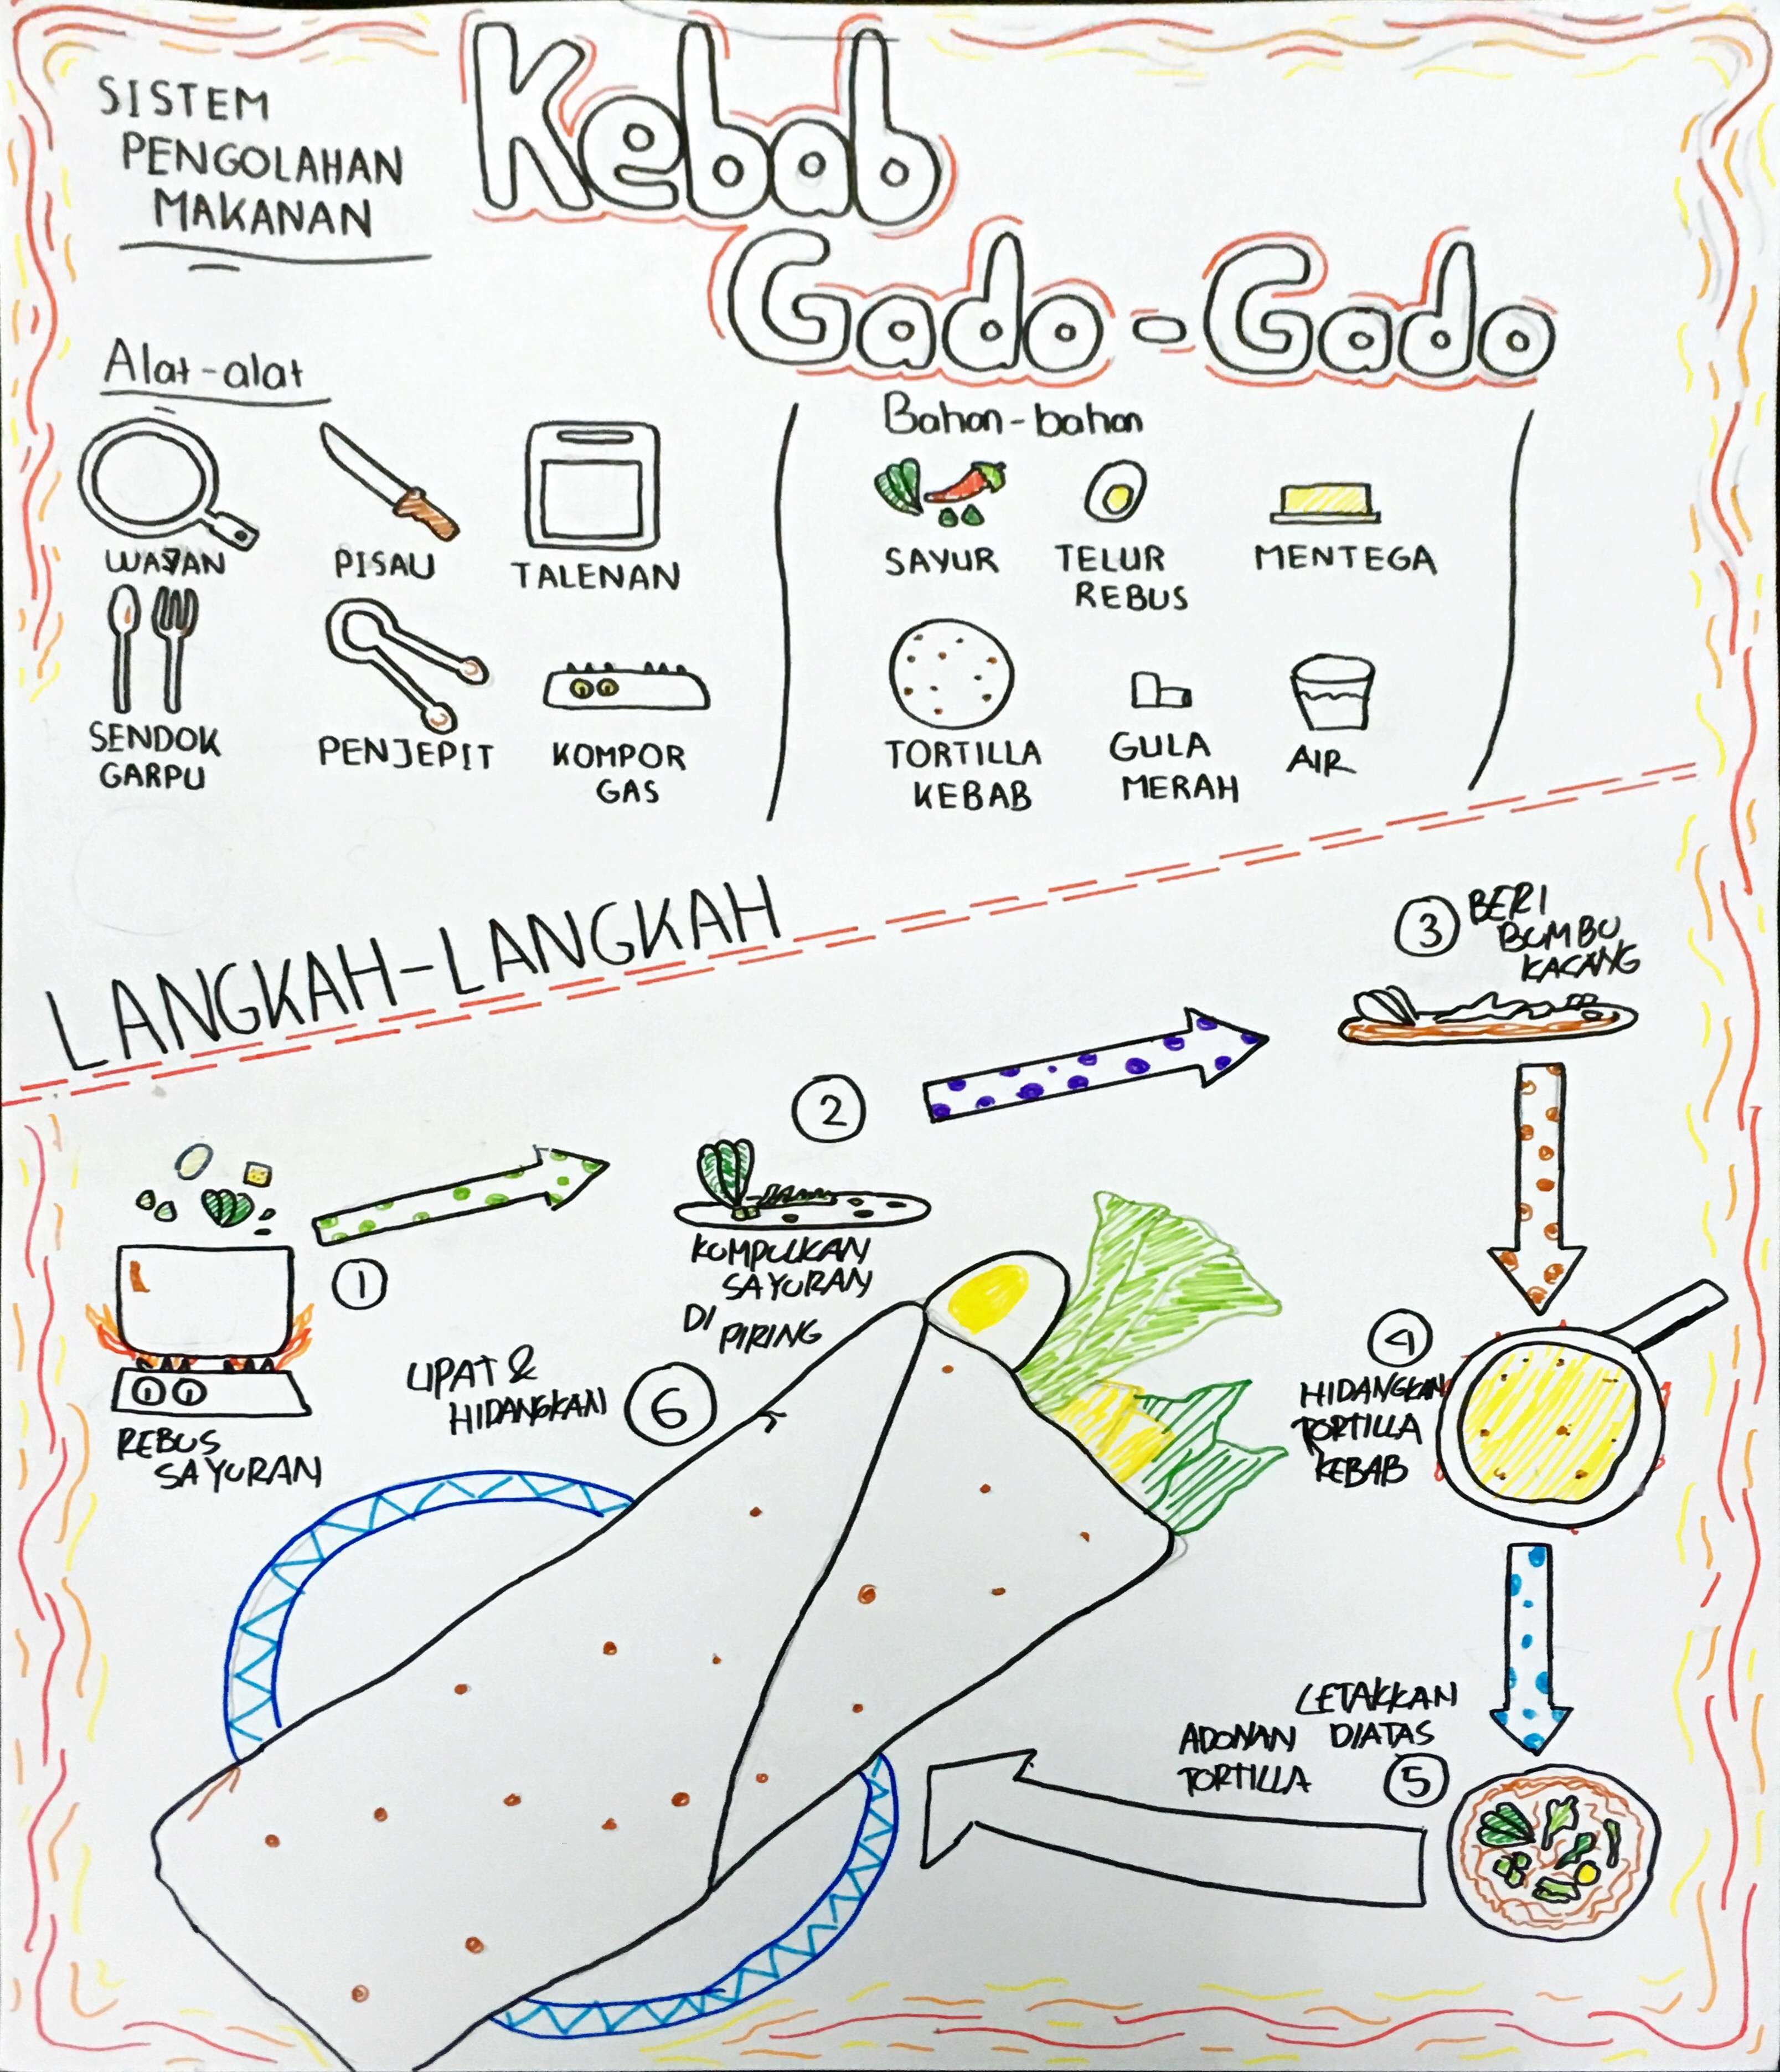 SISTEM
PENGOLAHAN
MAKANAN
Kebab
Gado-Gado
Alat-alat
WAJAN
PISAU
TALENAN
SENDOK
GARPU
PENJEPIT
KOMPOR
GAS
Bahan-bahan
SAYUR
TELUR
REBUS
MENTEGA
TORTILLA
KEBAB
GULA
MERAH
AIR
LANGKAH-LANGKAH
1
REBUS
SAYURAN
2
KUMPULKAN
SAYURAN
DI
PIRING
3 BERI
BUMBU
KACANG
4
HIDANGKAN
TORTILLA
KEBAB
LETAKKAN
ADONAN DIATAS
TORTILLA 5
LIPAT &
HIDANGKAN 6